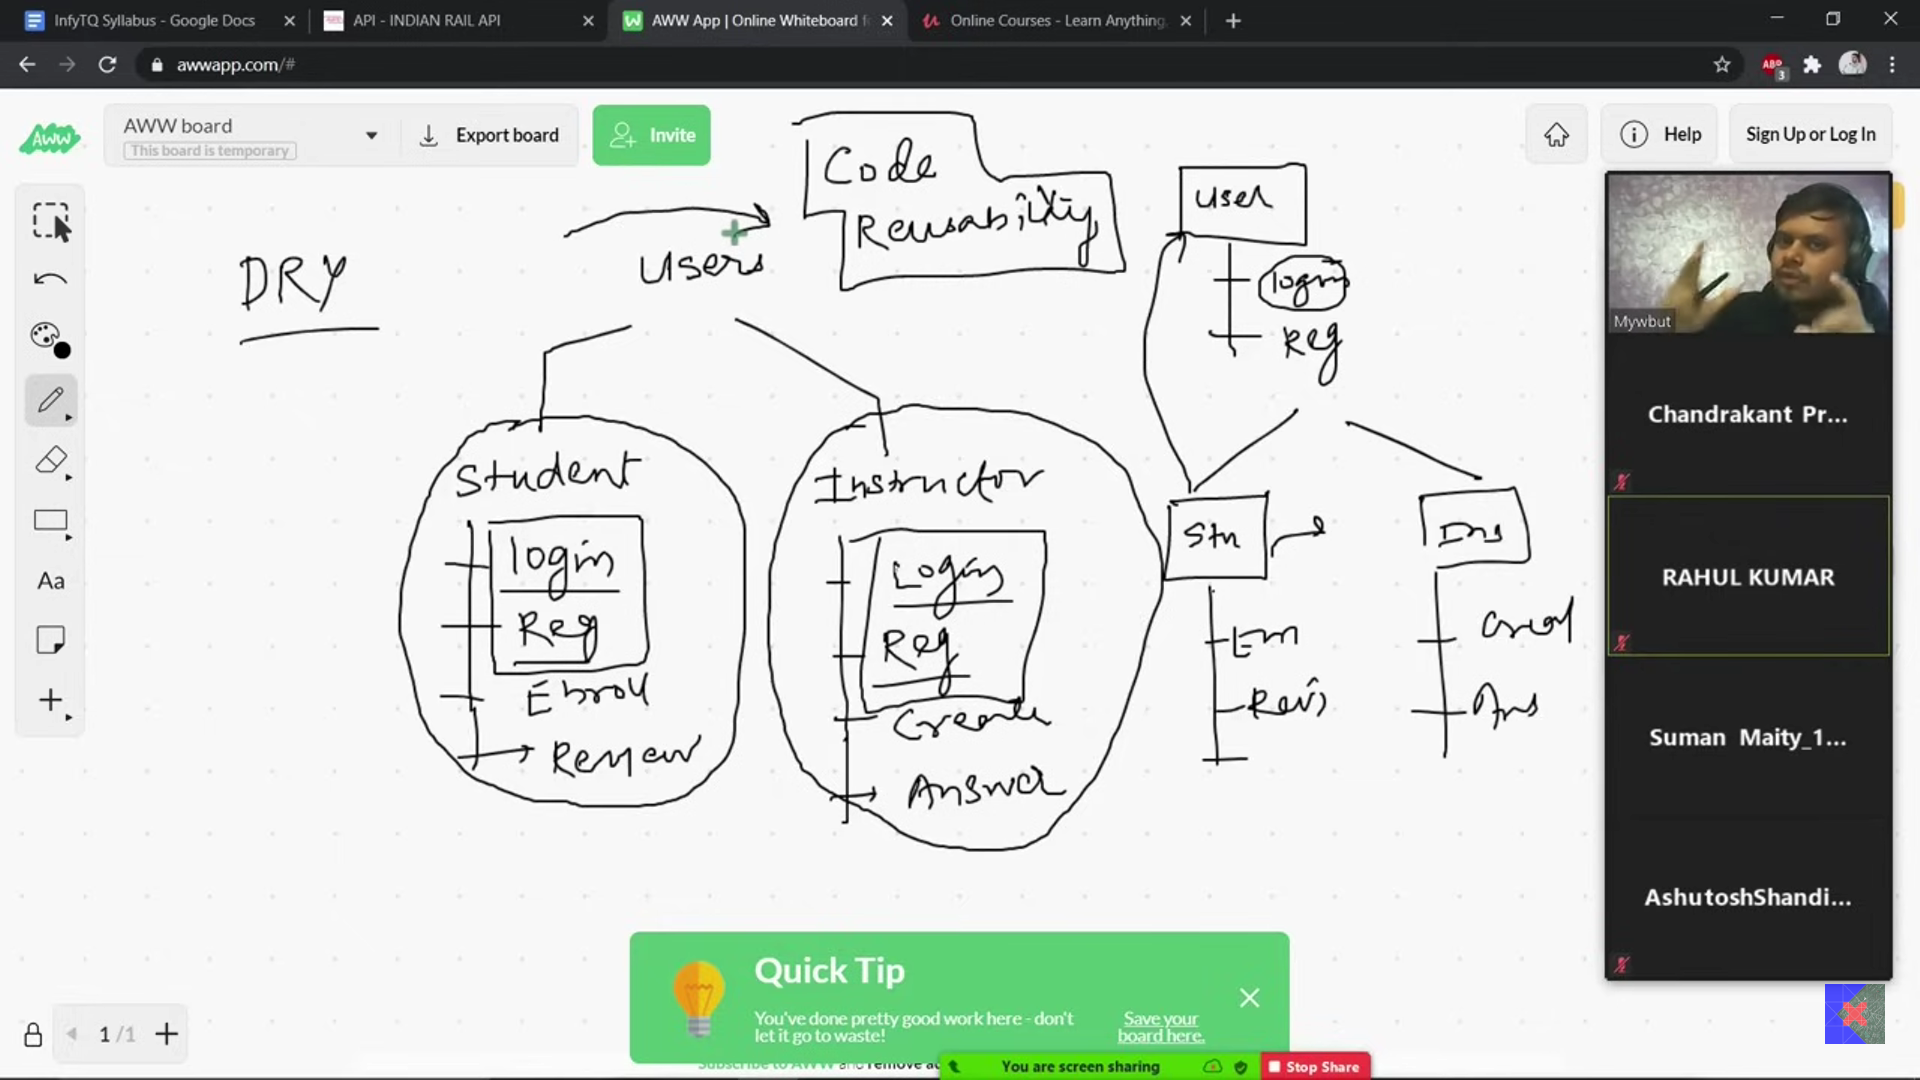 InfyTQ Syllabus - Google Docs
API - INDIAN RAIL API
AWW App | Online Whiteboard f
Online Courses - Learn Anything,
awwapp.com/#
ABP
3
AWW
AWW board
This board is temporary
Export board
Invite
Help
Sign Up or Log In
Code
Reusability
DRY
Users
User
login
Reg
Student
login
Reg
Enroll
Review
Instructor
Login
Reg
Create
Answer
Stu
Ins
Rev
Ans
Aa
Mywbut
Chandrakant Pr...
RAHUL KUMAR
Suman Maity_1...
AshutoshShandi...
Quick Tip
You've done pretty good work here - don't
let it go to waste!
Save your
board here.
1 /1
Subscribe to AWW and remove ad
You are screen sharing
Stop Share